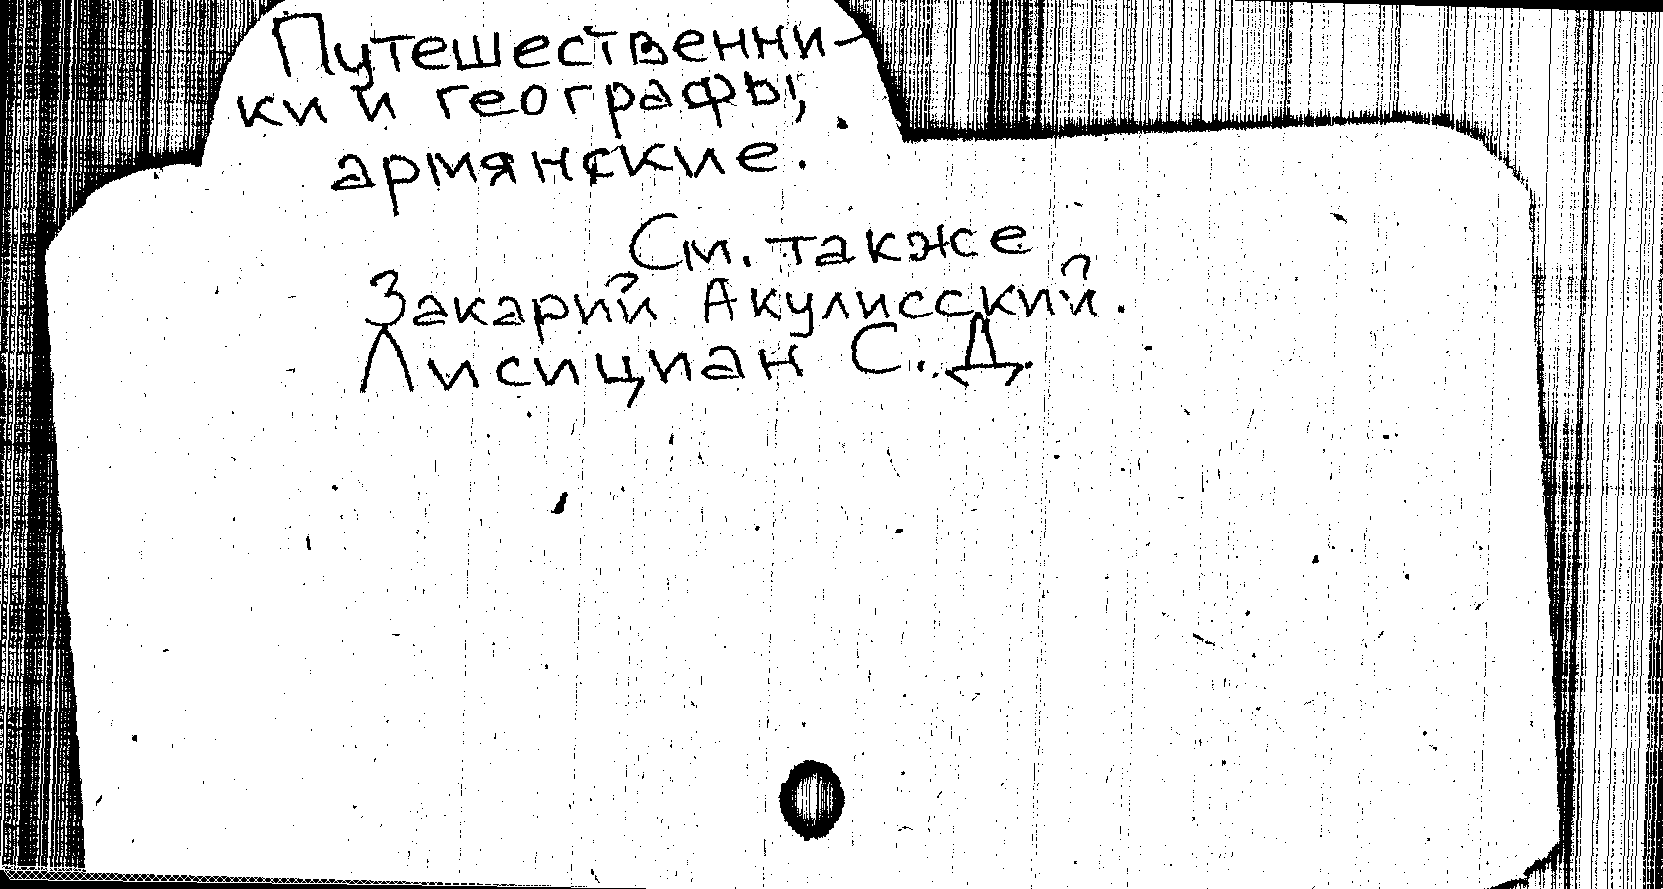 Путешественни-
ки и географы,
армянские.
См. также
Закарий Акулисский.
Лисициан С. Д.